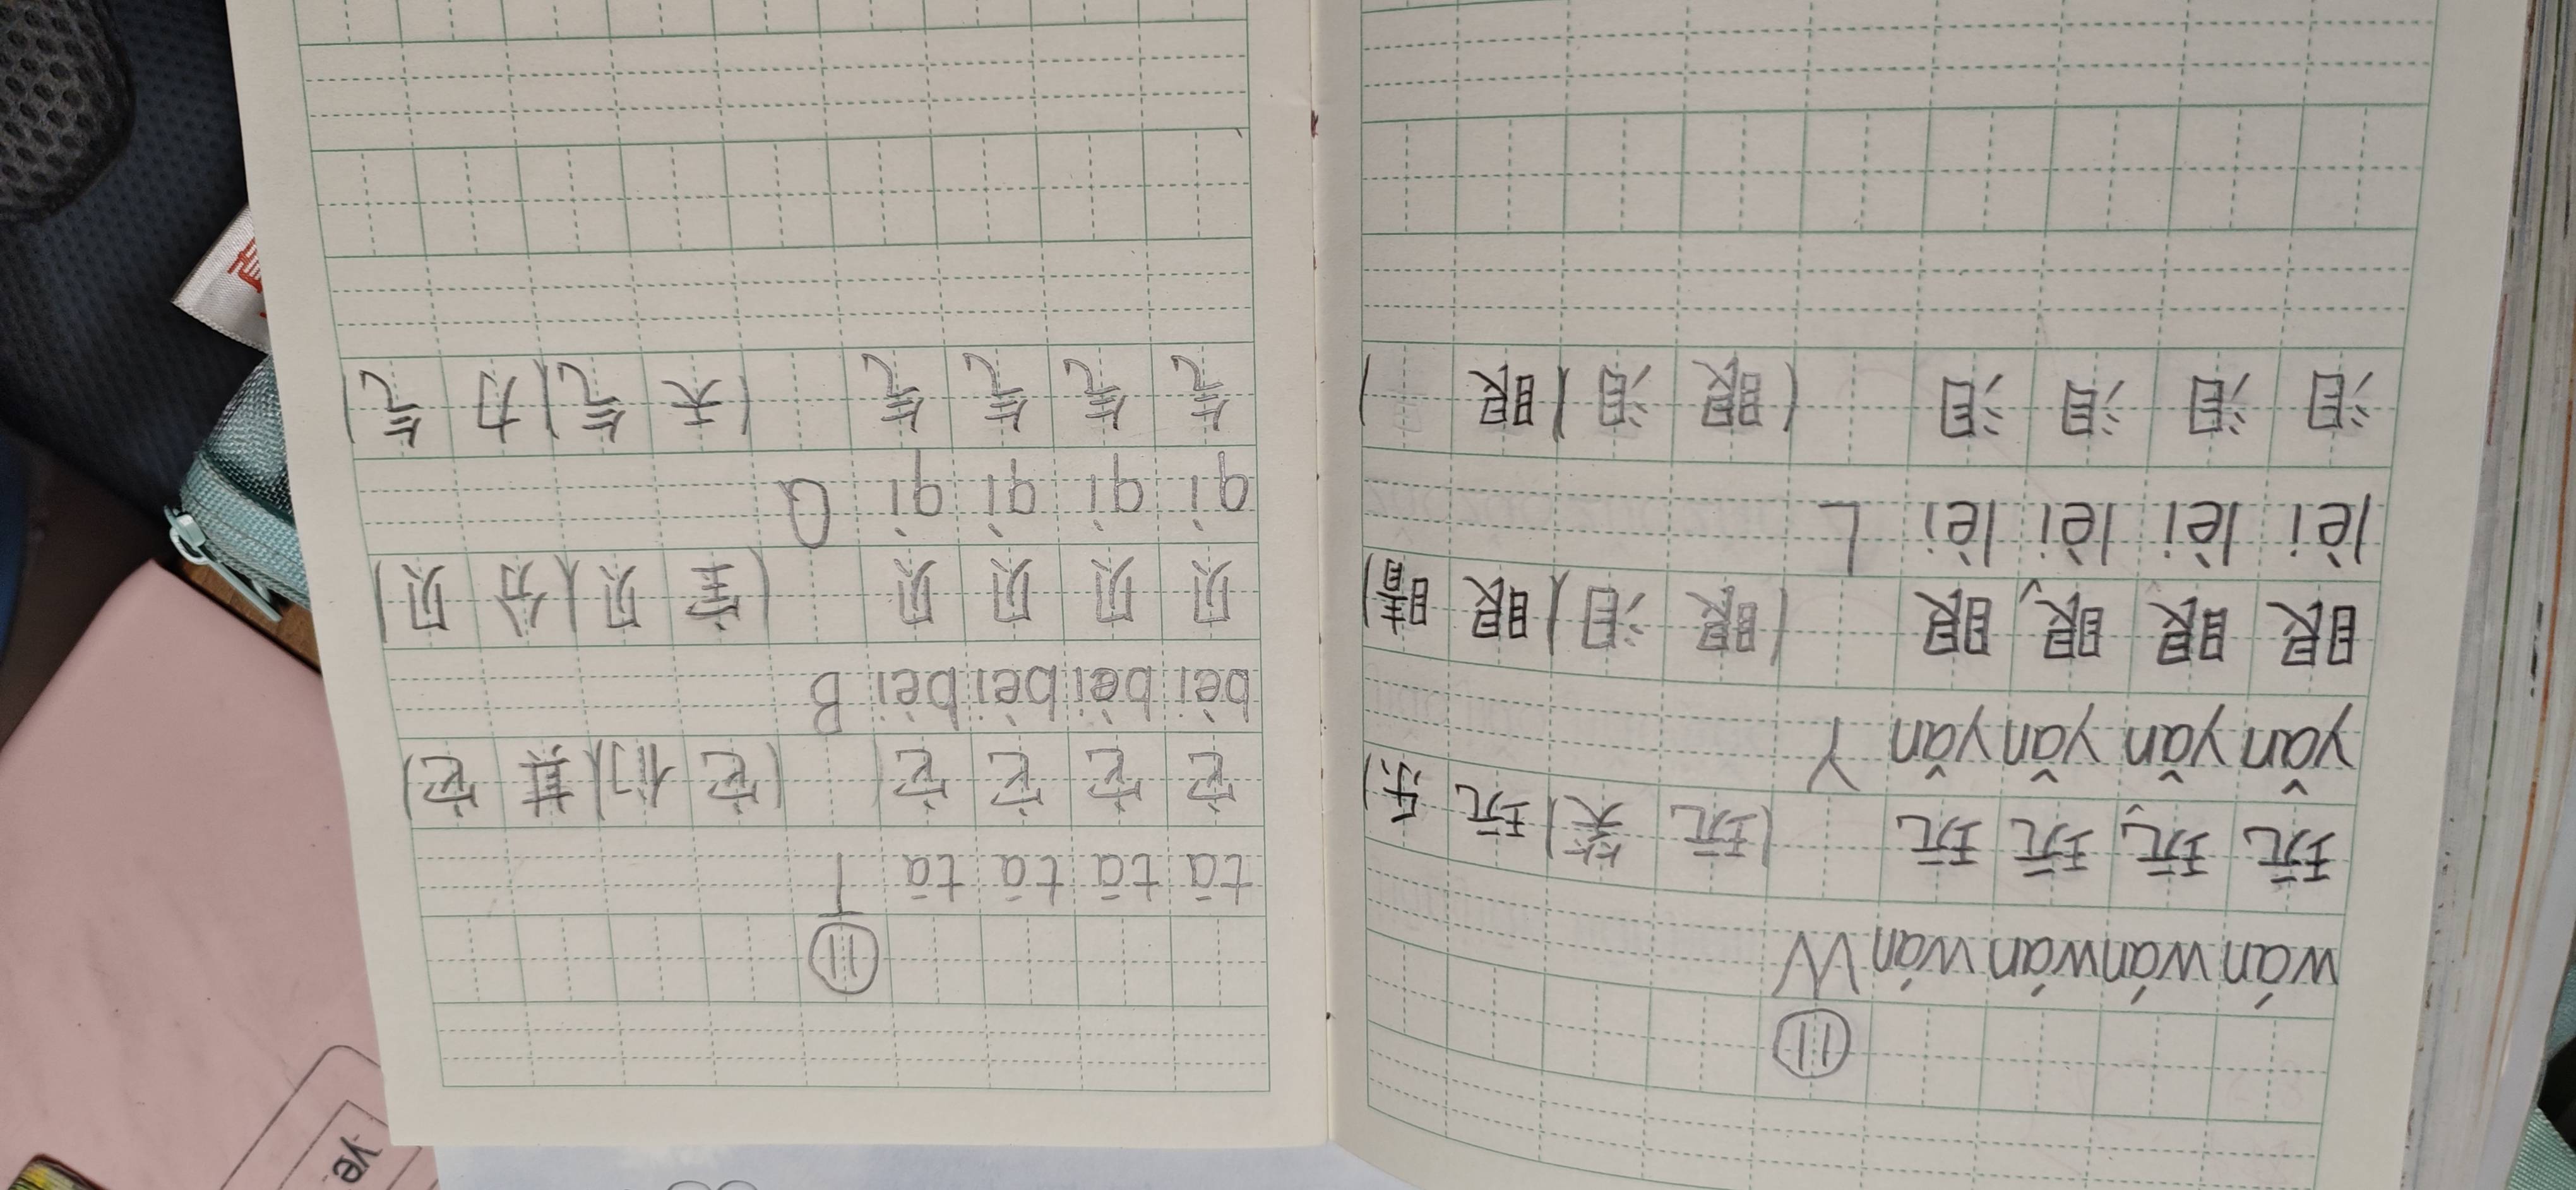 ⑪
wán wán wán wán W
玩 玩 玩 玩 (玩笑)(玩乐)
yǎn yǎn yǎn yǎn Y
眼 眼 眼 眼 (眼泪)(眼睛)
lèi lèi lèi lèi L
泪 泪 泪 泪 (眼泪)(眼 )
⑪
tā tā tā tā T
它 它 它 它 (它们)(其它)
bèi bèi bèi bèi B
贝 贝 贝 贝 (宝贝)(分贝)
qì qì qì qì Q
气 气 气 气 (天气)(力气)
ye